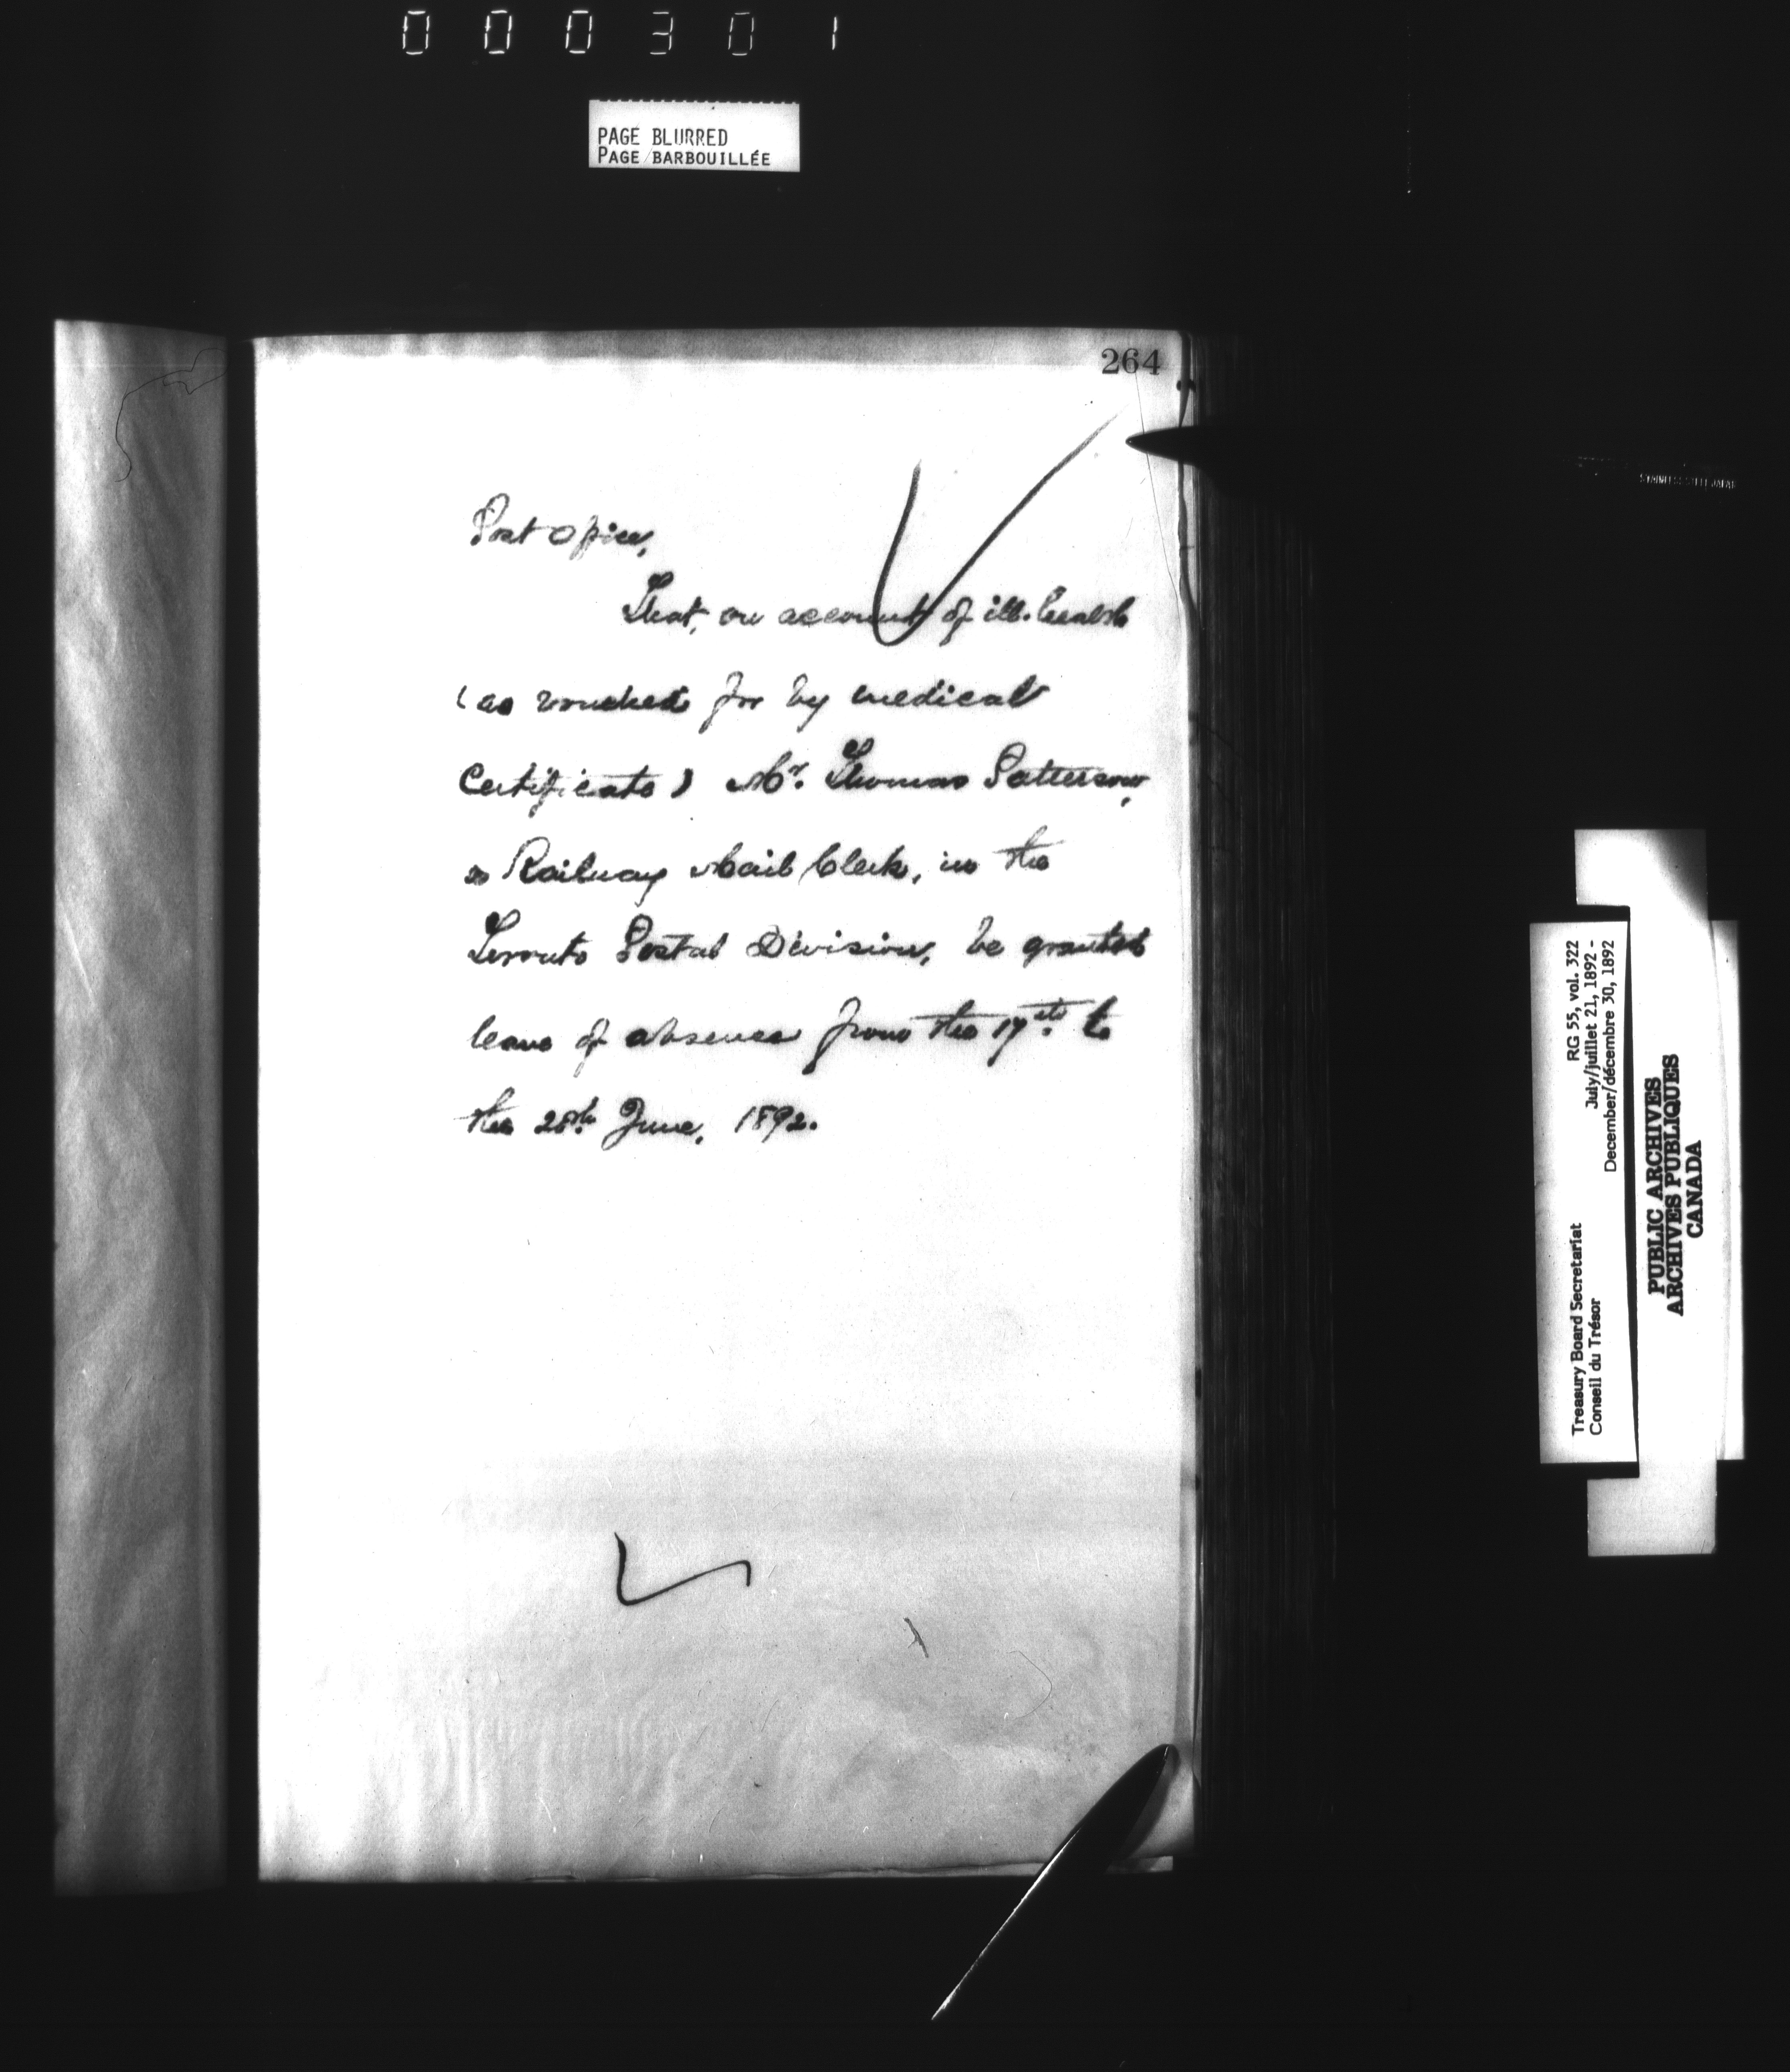 000301
PAGE BLURRED
PAGE BARBOUILLÉE
264
Post Office,
That, on account of ill-health
(as vouched for by medical
Certificate) Mr. Thomas Patterson,
a Railway Mail Clerk, in the
Toronto Postal Division, be granted
leave of absence from the 17th to
the 28th June, 1892.
Treasury Board Secretariat RG 55, vol. 322
Conseil du Trésor July/juillet 21, 1892 -
December/décembre 30, 1892
PUBLIC ARCHIVES
ARCHIVES PUBLIQUES
CANADA